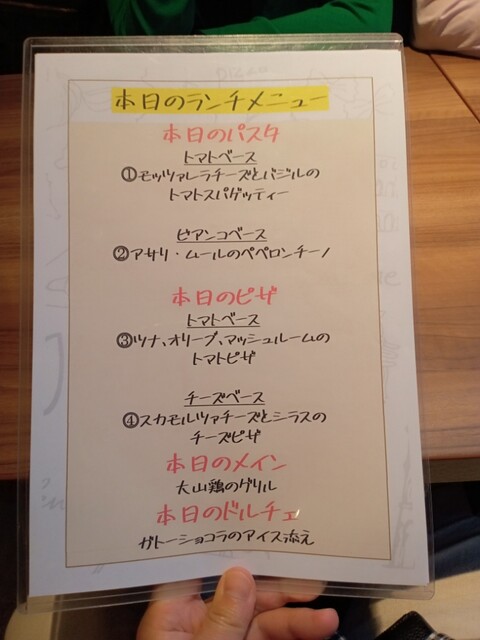 本日のランチメニュー
本日のパスタ
トマトベース
①モッツァレラチーズとバジルの
トマトスパゲッティー
ビアンコベース
②アサリ・ムールのペペロンチーノ
本日のピザ
トマトベース
③ツナ、オリーブ、マッシュルームの
トマトピザ
チーズベース
④スカモルツァチーズとシラスの
チーズピザ
本日のメイン
大山鶏のグリル
本日のドルチェ
ガトーショコラのアイス添え